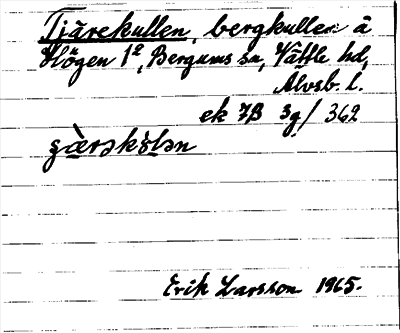 Tjärekullen, bergkulle å
Högen 1², Bergums sn, Vättle hd,
Älvsb. l.
ek 7B 3g/362
Erik Larsson 1965.